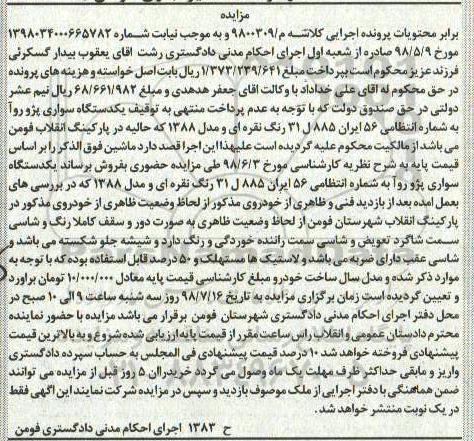 مزایده
برابر محتویات پرونده اجرایی کلاسه م/۹۸۰۰۳۰۹ و به موجب نیابت شماره ۱۳۹۸۰۳۴۰۰۰۶۶۵۷۸۲
مورخ ۹۸/۵/۹ صادره از شعبه اول اجرای احکام مدنی دادگستری رشت آقای یعقوب بیدار گسکرئی
فرزند عزیز محکوم است بپرداخت مبلغ ۱/۳۷۳/۲۳۹/۶۴۱ ریال بابت اصل خواسته و هزینه های پرونده
در حق محکوم له آقای علی خداداد با وکالت آقای جعفر هدهدی و مبلغ ۶۸/۶۶۱/۹۸۲ ریال نیم عشر
دولتی در حق صندوق دولت که با توجه به عدم پرداخت منتهی به توقیف یکدستگاه سواری پژو روآ
به شماره انتظامی ۵۶ ایران ۸۸۵ ل ۳۱ رنگ نقره ای و مدل ۱۳۸۸ که حالیه در پارکینگ انقلاب فومن
می باشد از مالکیت محکوم علیه گردیده است علیهذا این اجرا قصد دارد ماشین فوق الذکر را بر اساس
قیمت پایه به شرح نظریه کارشناسی مورخ ۹۸/۶/۳ طی مزایده حضوری بفروش برساند یکدستگاه
سواری پژو روآ به شماره انتظامی ۵۶ ایران ۸۸۵ ل ۳۱ رنگ نقره ای و مدل ۱۳۸۸ که در بررسی های
بعمل آمده بعد از بازدید فنی و ظاهری از خودروی مذکور از لحاظ وضعیت ظاهری از خودروی مذکور در
پارکینگ انقلاب شهرستان فومن از لحاظ وضعیت ظاهری به صورت دور و سقف کاملا رنگ و شاسی
سمت شاگرد تعویض و شاسی سمت راننده خوردگی و رنگ دارد و شیشه جلو شکسته می باشد و
شاسی عقب دارای ضربه می باشد و لاستیک ها مستهلک و ۵۰ درصد قابل استفاده بوده که با توجه به
موارد ذکر شده و مدل سال ساخت خودرو مبلغ کارشناسی قیمت پایه معادل ۱۰/۰۰۰/۰۰۰ تومان براورد
و تعیین گردیده است زمان برگزاری مزایده به تاریخ ۹۸/۷/۱۶ روز سه شنبه ساعت ۹ الی ۱۰ صبح در
محل دفتر اجرای احکام مدنی دادگستری شهرستان فومن برقرار می باشد مزایده با حضور نماینده
محترم دادستان عمومی و انقلاب راس ساعت مقرر از قیمت پایه ارزیابی شده شروع و به بالاترین قیمت
پیشنهادی فروخته خواهد شد ۱۰ درصد قیمت پیشنهادی فی المجلس به حساب سپرده دادگستری
واریز و مابقی حداکثر ظرف مهلت یک ماه وصول می گردد خریداران ۵ روز قبل از مزایده می توانند
ضمن هماهنگی با دفتر اجرایی از ملک موصوف بازدید و سپس در مزایده شرکت نمایند این آگهی فقط
در یک نوبت منتشر خواهد شد.
ح ۱۳۸۳ اجرای احکام مدنی دادگستری فومن